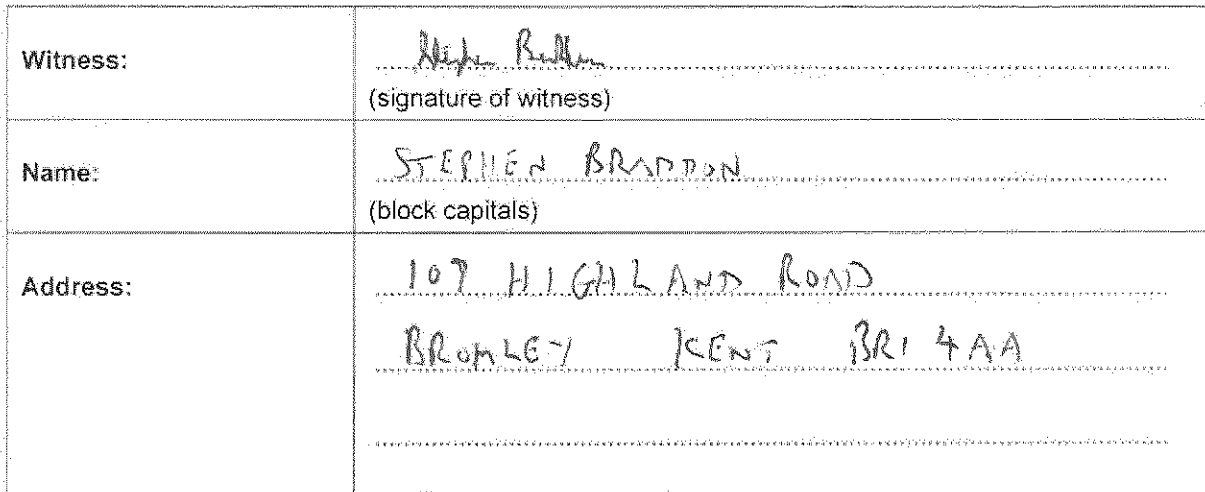 Witness:
(signature of witness)
Name: STEPHEN BRADDON
(block capitals)
Address: 107 HIGHLAND ROAD
BROMLEY KENT BR1 4AA